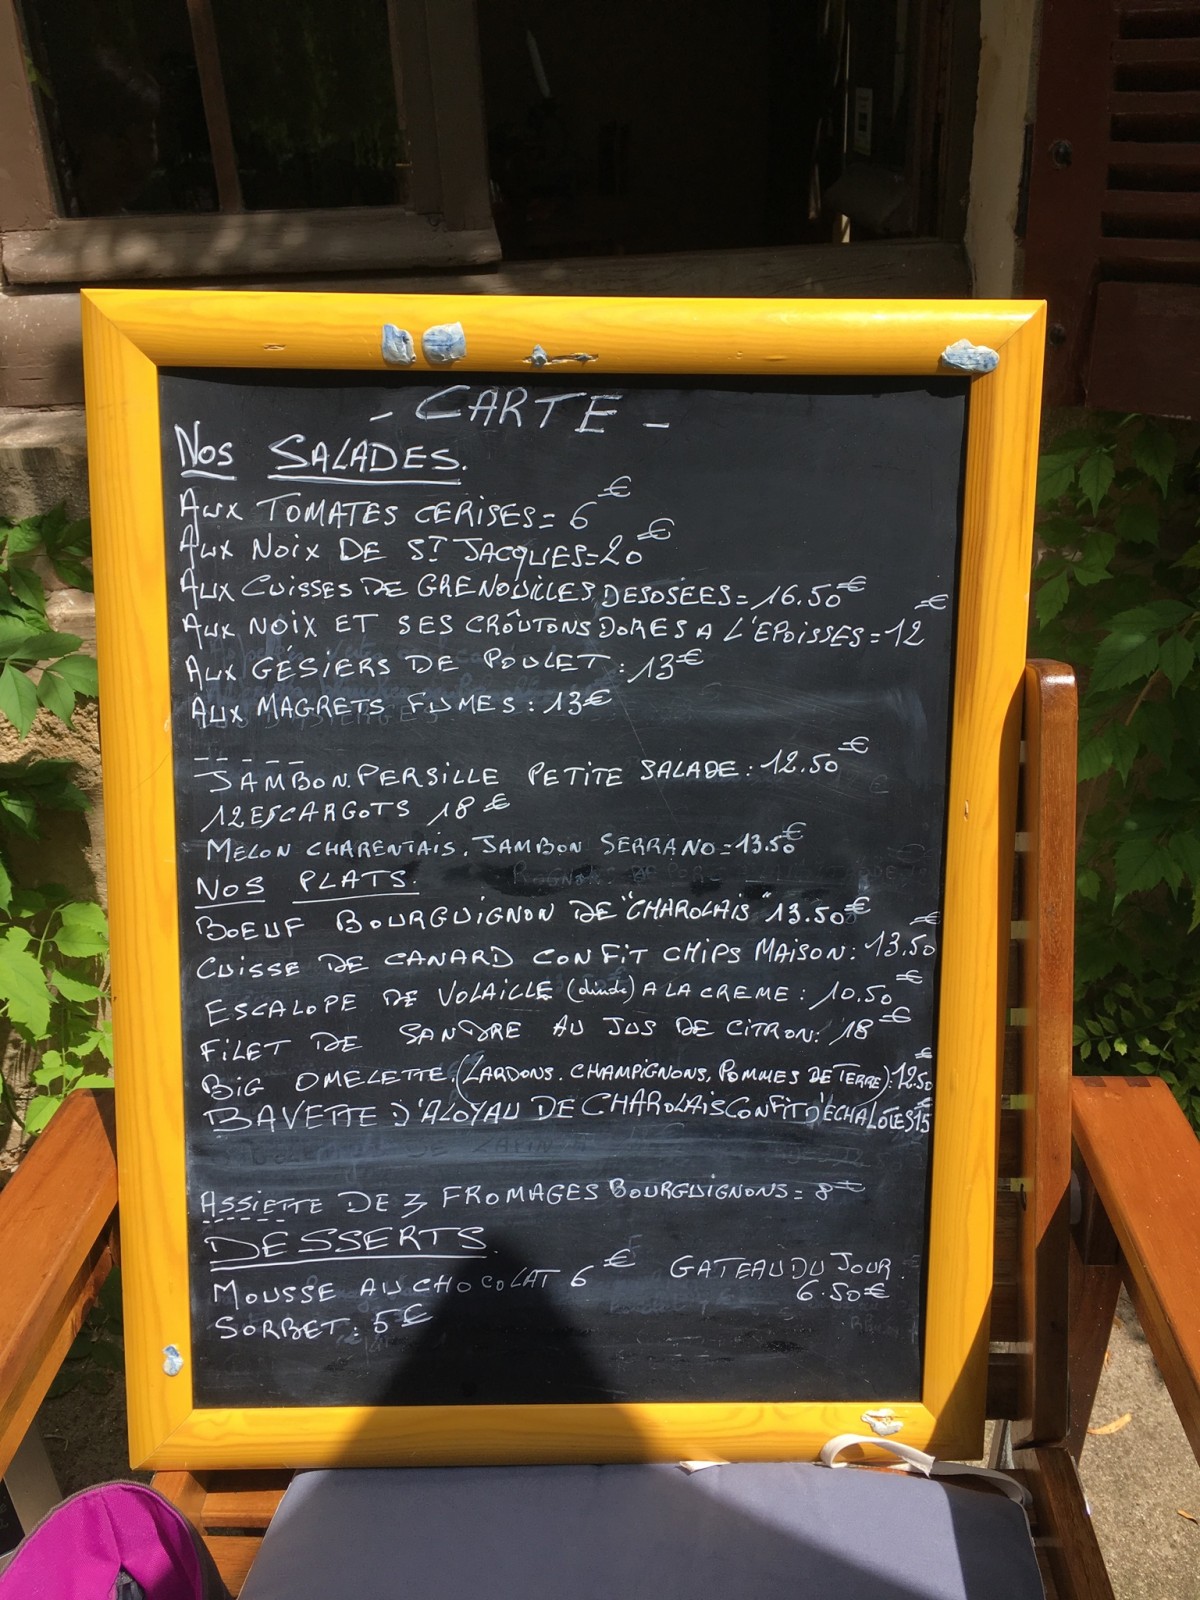 - CARTE -
NOS SALADES.
AUX TOMATES CERISES = 6€
AUX NOIX DE ST JACQUES = 20€
AUX CUISSES DE GRENOUILLES DESOSÉES = 16.50€
AUX NOIX ET SES CROÛTONS DORES A L'EPOISSES = 12€
AUX GÉSIERS DE POULET : 13€
AUX MAGRETS FUMES : 13€
JAMBON PERSILLE PETITE SALADE : 12.50€
12 ESCARGOTS 18€
MELON CHARENTAIS. JAMBON SERRANO = 13.50€
NOS PLATS.
BOEUF BOURGUIGNON DE "CHAROLAIS" 13.50€
CUISSE DE CANARD CONFIT CHIPS MAISON : 13.50€
ESCALOPE DE VOLAILLE (dinde) A LA CREME : 10.50€
FILET DE SANDRE AU JUS DE CITRON : 18€
BIG OMELETTE. (LARDONS. CHAMPIGNONS, POMMES DE TERRE) : 12.50€
BAVETTE D'ALOYAU DE CHAROLAIS CONFIT D'ECHALOTES 15€
ASSIETTE DE 3 FROMAGES BOURGUIGNONS = 8€
DESSERTS.
MOUSSE AU CHOCOLAT 6€ GATEAU DU JOUR.
6.50€
SORBET : 5€